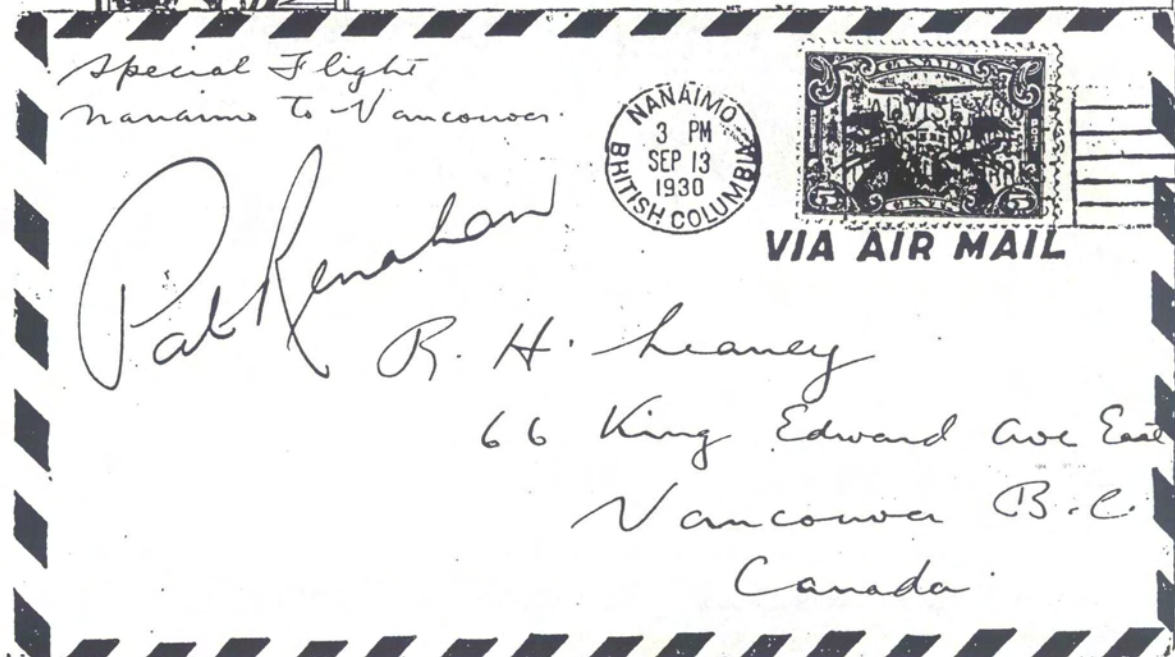 Special Flight
Nanaimo To Vancouver.
NANAIMO
3 PM
SEP 13
1930
BRITISH COLUMBIA
CANADA
ADVISE YOU
5 CENTS 5
VIA AIR MAIL
Pat Renahan
R. H. Leaney
66 King Edward Ave East
Vancouver B.C.
Canada